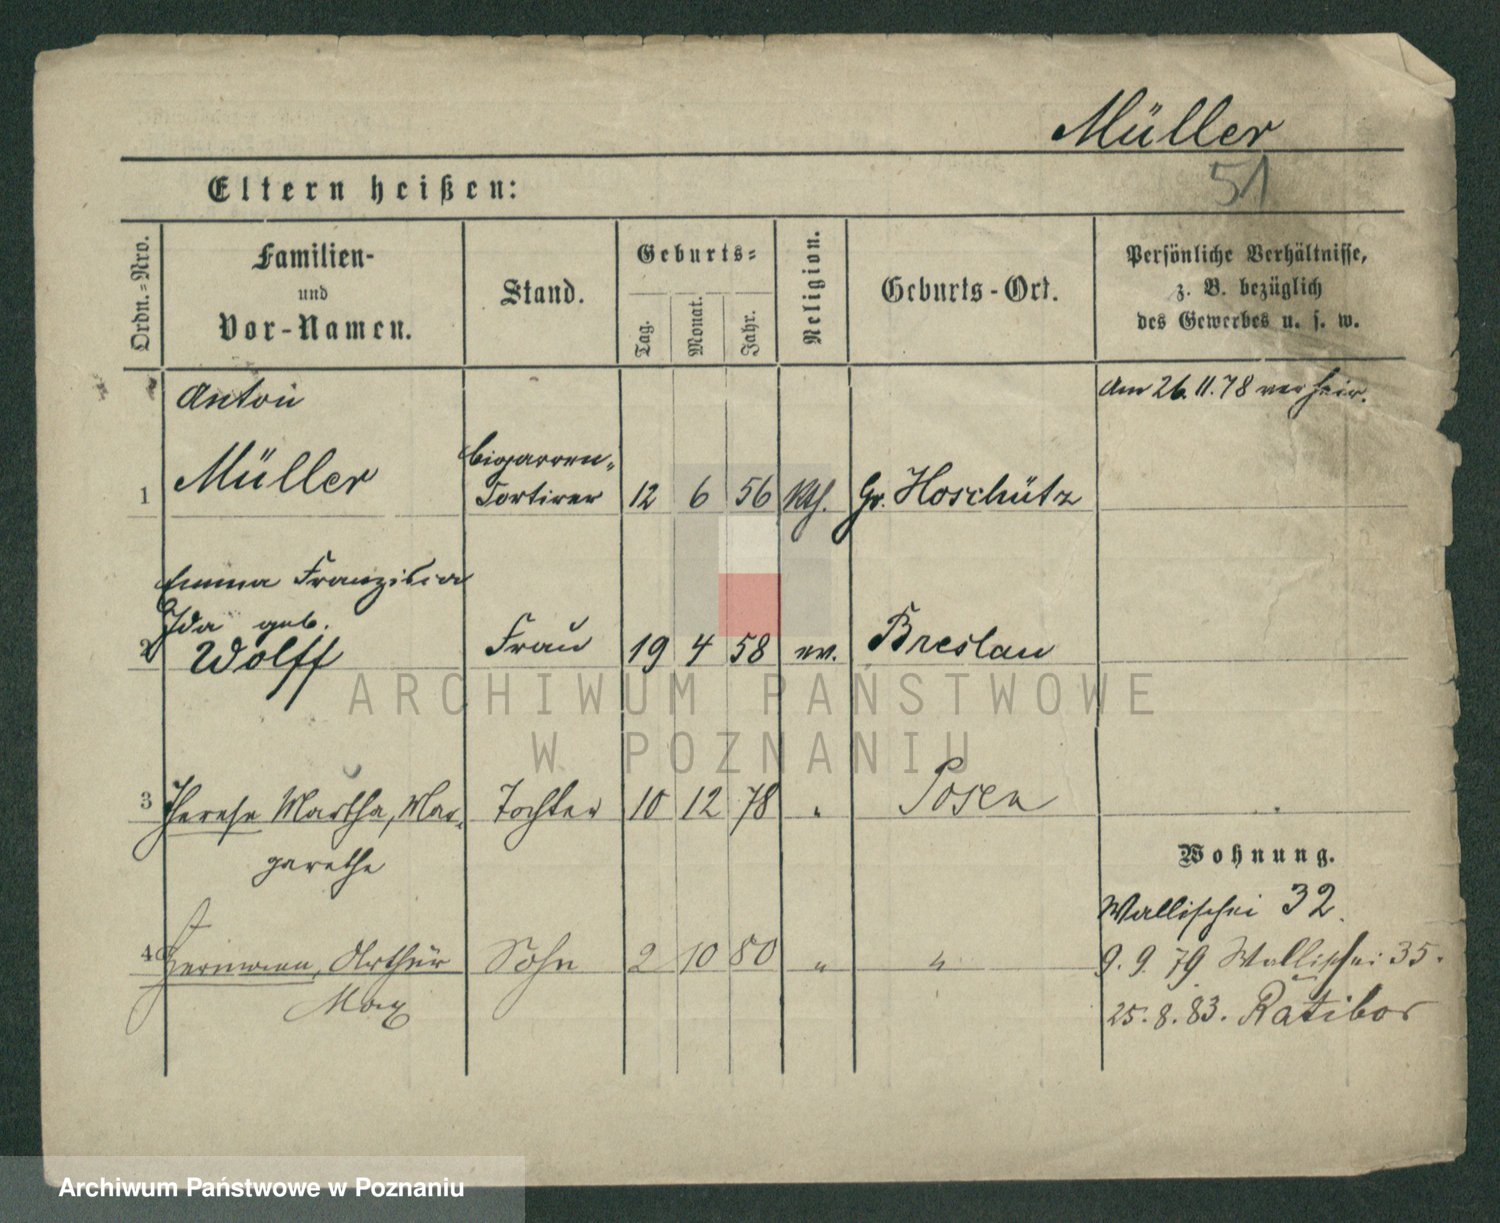 Müller
51
Eltern heißen:
Ordn.-Nro.
Familien-
und
Vor-Namen.
Stand.
Geburts-
Tag.
Monat.
Jahr.
Religion.
Geburts-Ort.
Persönliche Verhältnisse,
z. B. bezüglich
des Gewerbes u. s. w.
Anton
Am 26.11.78 verheir.
Müller
Cigarren-
1 Sortirer 12 6 56 Kth. Gr. Hoschütz
Emma Franziska
Ida geb.
2 Wolff Frau 19 4 58 ev. Breslau
3 Therese Martha, Mar- Tochter 10 12 78 " Posen
garethe
Wohnung.
Wallischei 32.
4 Hermann, Arthur Sohn 2 10 80 " " 9. 9. 79 Wallischei 35.
Max
25. 8. 83. Ratibor
ARCHIWUM PAŃSTWOWE
W POZNANIU
Archiwum Państwowe w Poznaniu